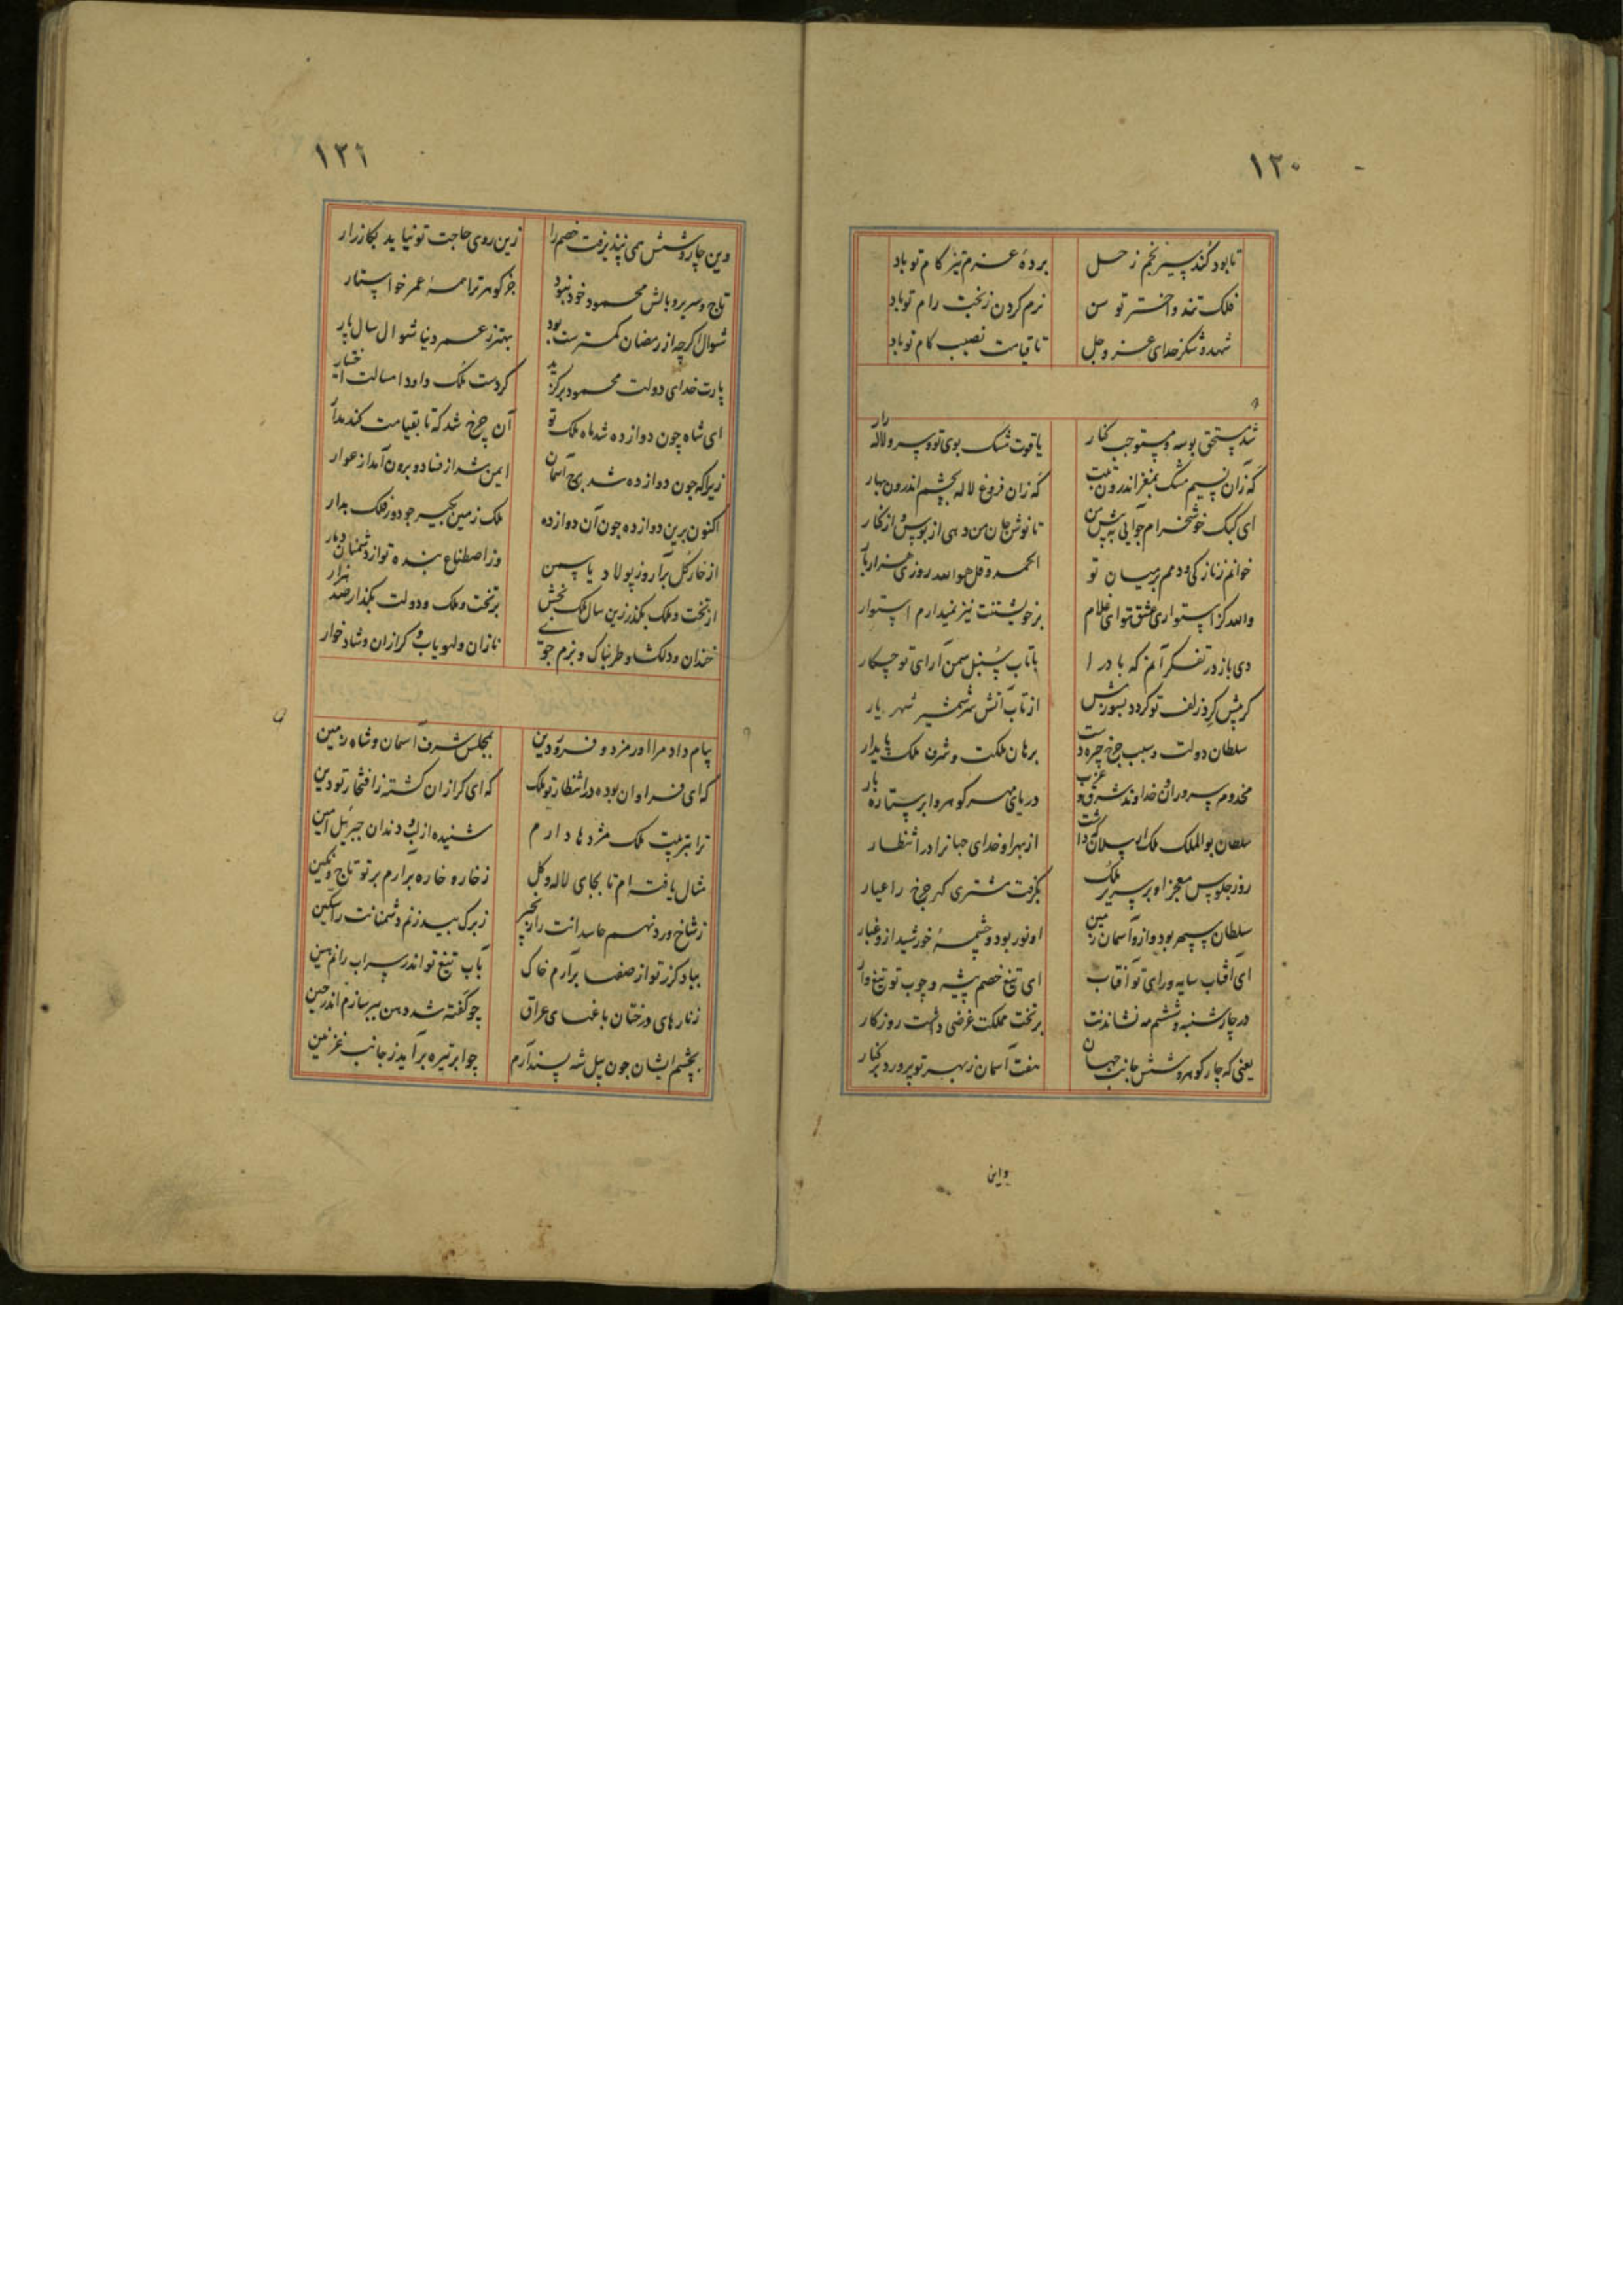 ١٢٠
تا بود کند سیر نجم زحل
بردهٔ عزم تیز کام تو باد
فلک تند و اختر تو سن
نرم کردن زبخت رام تو باد
شهد و شکر خدای عز و جل
تا قیامت نصیب کام تو باد
شد مستحق بوسه و مستوجب کنار
یاقوت مشک بوی تو و سرو لاله
که زان نسیم مشک بمغز اندرون
که زان فروغ لاله بچشم اندرون بهار
ای کبک خوشخرام
تا نوش جان من دهی از بوس و از کنار
خوانم زناز کی و دمم بر میان تو
الحمد و قل هو الله روزی هزار بار
والله کز استواری عشق تو ای غلام
بر خویشتنت نیز نمیدارم استوار
دی باز در تفکر آنم که باد را
با تاب سنبل سمن آرای تو چکار
کر پیش کرد زلف تو کردد بسوزش
از تاب آتش سر شمشیر شهریار
سلطان دولت و سبب چرخ چیره دست
برهان ملکت و شرف ملک پایدار
مخدوم سروران و خداوند شرق و غرب
دریای مهر کوهر و ابر ستاره بار
سلطان بو الملک ملک ارسلان که داشت
از بهر او خدای جهانرا در انتظار
روز جلوس معجز او بر سریر ملک
بگرفت مشتری کهر چرخ را عیار
سلطان سپهر بود و ازو آسمان زمین
او نور بود و چشمهٔ خورشید ازو غبار
ای آفتاب سایه و رای تو آفتاب
ای تیغ خصم پیشه و چوب تو تیغ وار
در چار شنبه و ششم مه نشاندت
بر تخت مملکت غرضی داشت روزکار
یعنی که چار کوهر و شش جانب جهان
هفت آسمان ز بهر تو پرورد بر کنار
و این
١٢١
وین چار و شش همی نپذیرفت خصم را
زین روی حاجت تو نیاید بکارزار
تاج و سریر و بالش محمود خود نبود
جز کوهر ترا همهٔ عمر خواستار
شوال اکرچه از رمضان کمترست بود
بهتر ز عمر دنیا شوال سال پار
یارت خدای دولت محمود بر کزید
کردست ملک داود امسالت اختیار
ای شاه چون دوازده شد ماه ملک تو
آن چرخ شد که تا بقیامت کند مدار
زیرا که چون دوازده شد برج آسمان
ایمن شد از فنا و برون آمد از عوار
اکنون برین دوازده چون آن دوازده
ملک زمین بگیر چو دور فلک بدار
از خار کل برآر و ز پولاد یاسمن
وز اصطناع بنده تو از دشمنان دمار
از تخت و ملک بگذر زین سال ملک بخش
بر تخت و ملک و دولت بگذار صد هزار
خندان و دلکشا و طربناک و بزم جوی
نازان و لهو یاب و کرازان و شاد خوار
پیام داد مرا اورمزد و فرودین
بمجلس شرف آسمان و شاه زمین
که ای فراوان بوده در انتظار تو ملک
که ای کرازان کشته ز افتخار تو دین
ترا بتربیت ملک مژدها دارم
شنیده از لب و دندان جبرئیل امین
مثال یافته ام تا بجای لاله و کل
ز خار و خاره برارم بر تو تاج و نکین
ز شاخ ورد نهم حاسدانت را زنجیر
ز برک بید زنم دشمنانت را سکین
بباد کرز تو از صفها برآرم خاک
بآب تیغ تو اندر سراب رانم هین
زنارهای درختان باغهای عراق
چو کفته شد دهن ببر سازم اندر حین
بچشم ایشان چون پیل شه پسند آرم
چو ابر تیره برآید ز جانب غزنین